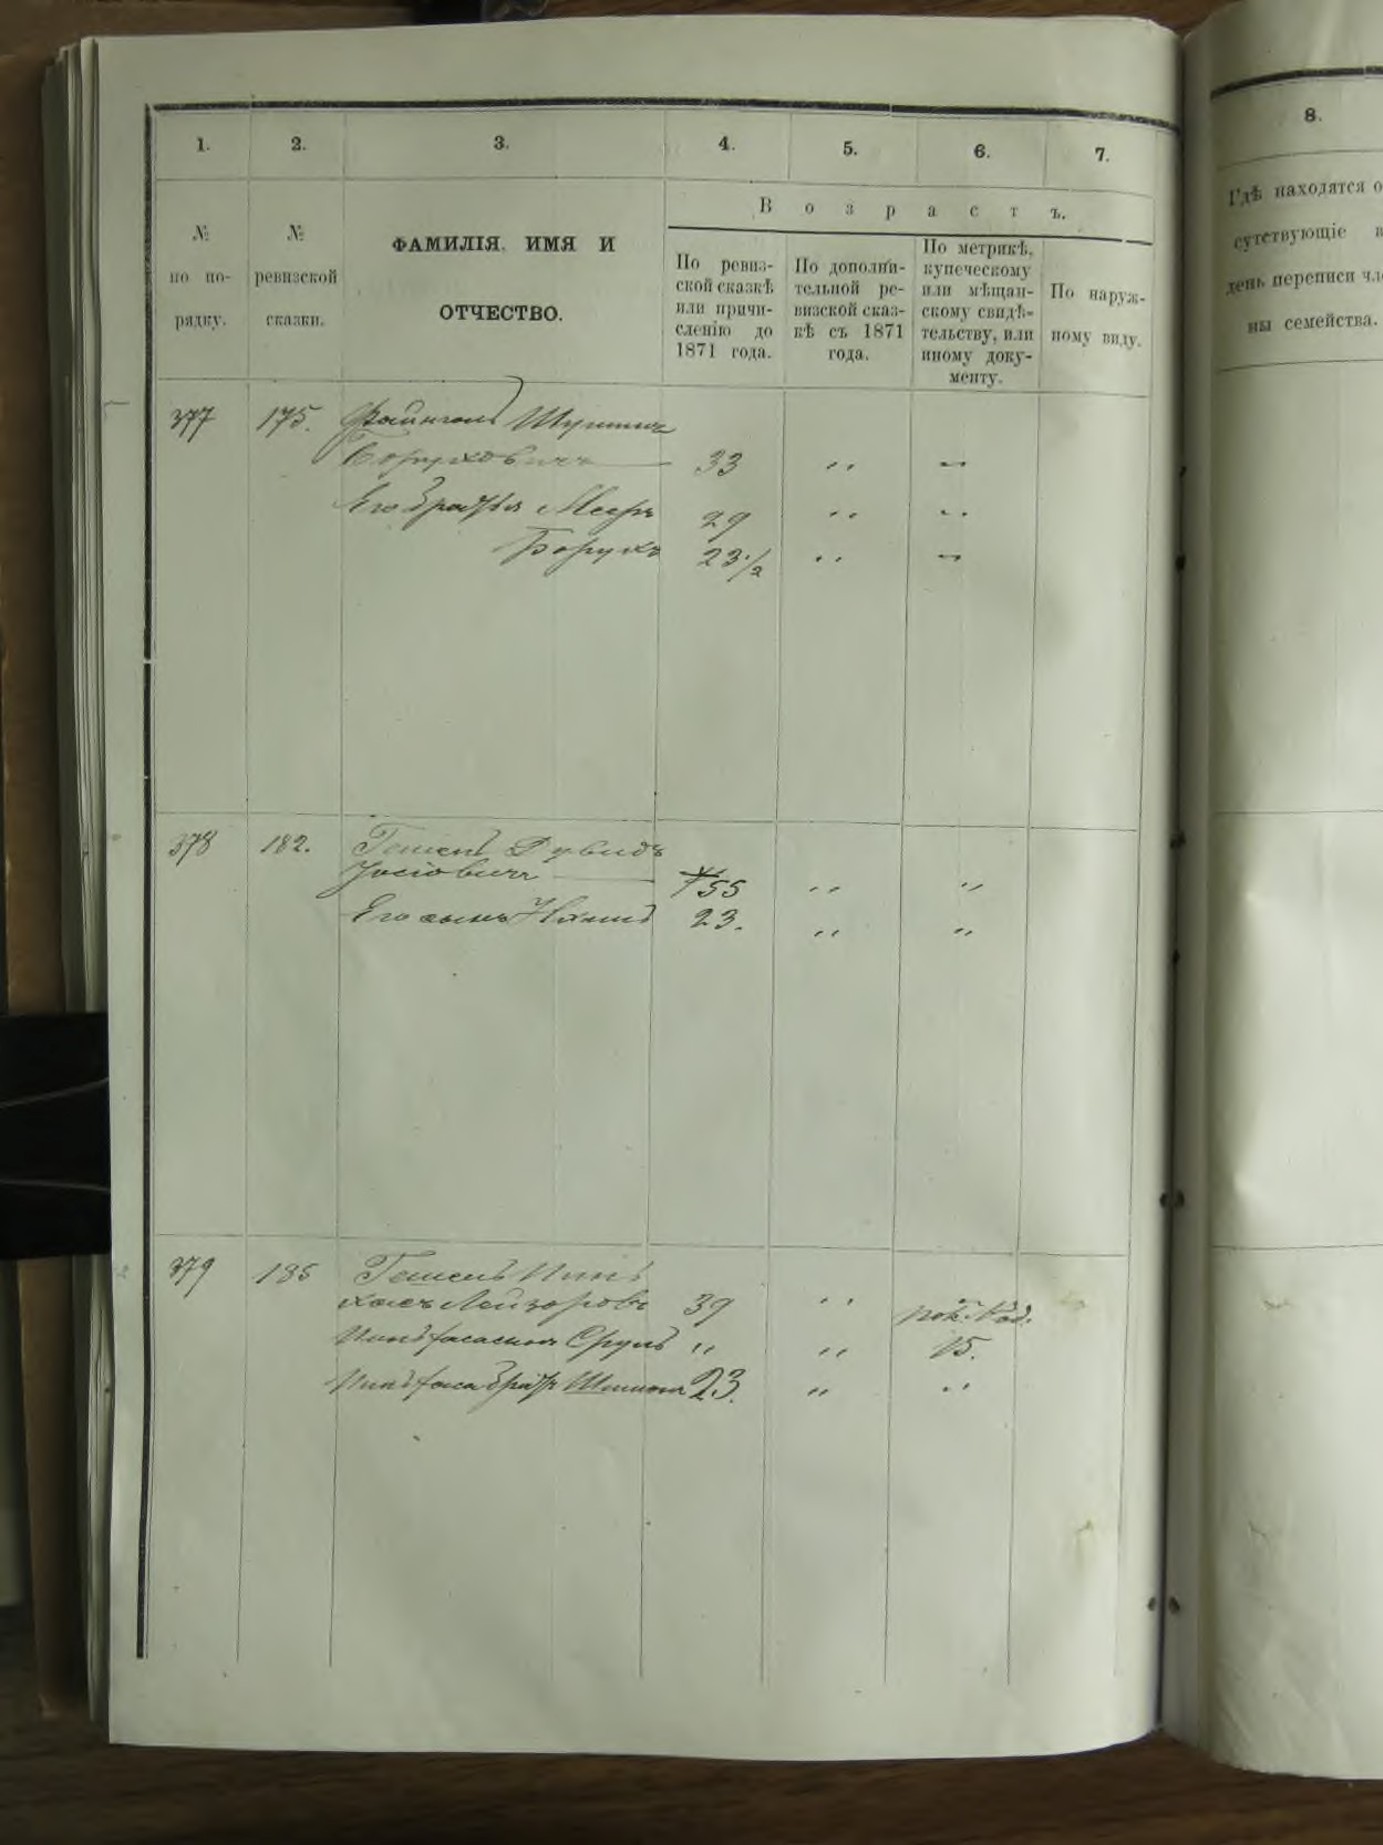 1. 2. 3. 4. 5. 6. 7.
№ по по-рядку.
№ ревизской сказки.
ФАМИЛІЯ, ИМЯ И
ОТЧЕСТВО.
Возрастъ.
По ревиз-
ской сказкѣ
или причи-
сленію до
1871 года.
По дополни-
тельной ре-
визской сказ-
кѣ съ 1871
года.
По метрикѣ,
купеческому
или мѣщан-
скому свидѣ-
тельству, или
иному доку-
менту.
По наруж-
ному виду.
377 175.
Боруховичъ 33 " "
Его братья Мееръ 29 " "
Борухъ 23 1/2 " "
378 182. Гешель Дувидъ
Іосіовичъ 55 " "
Его сынъ 23. " "
379 185 Гешель Пинь
хасъ Лейзоровъ 39 "
Сруль " " 15.
брать Шимонъ 23. " "
8.
Гдѣ находятся о
сутствующіе в
день переписи чле
ны семейства.